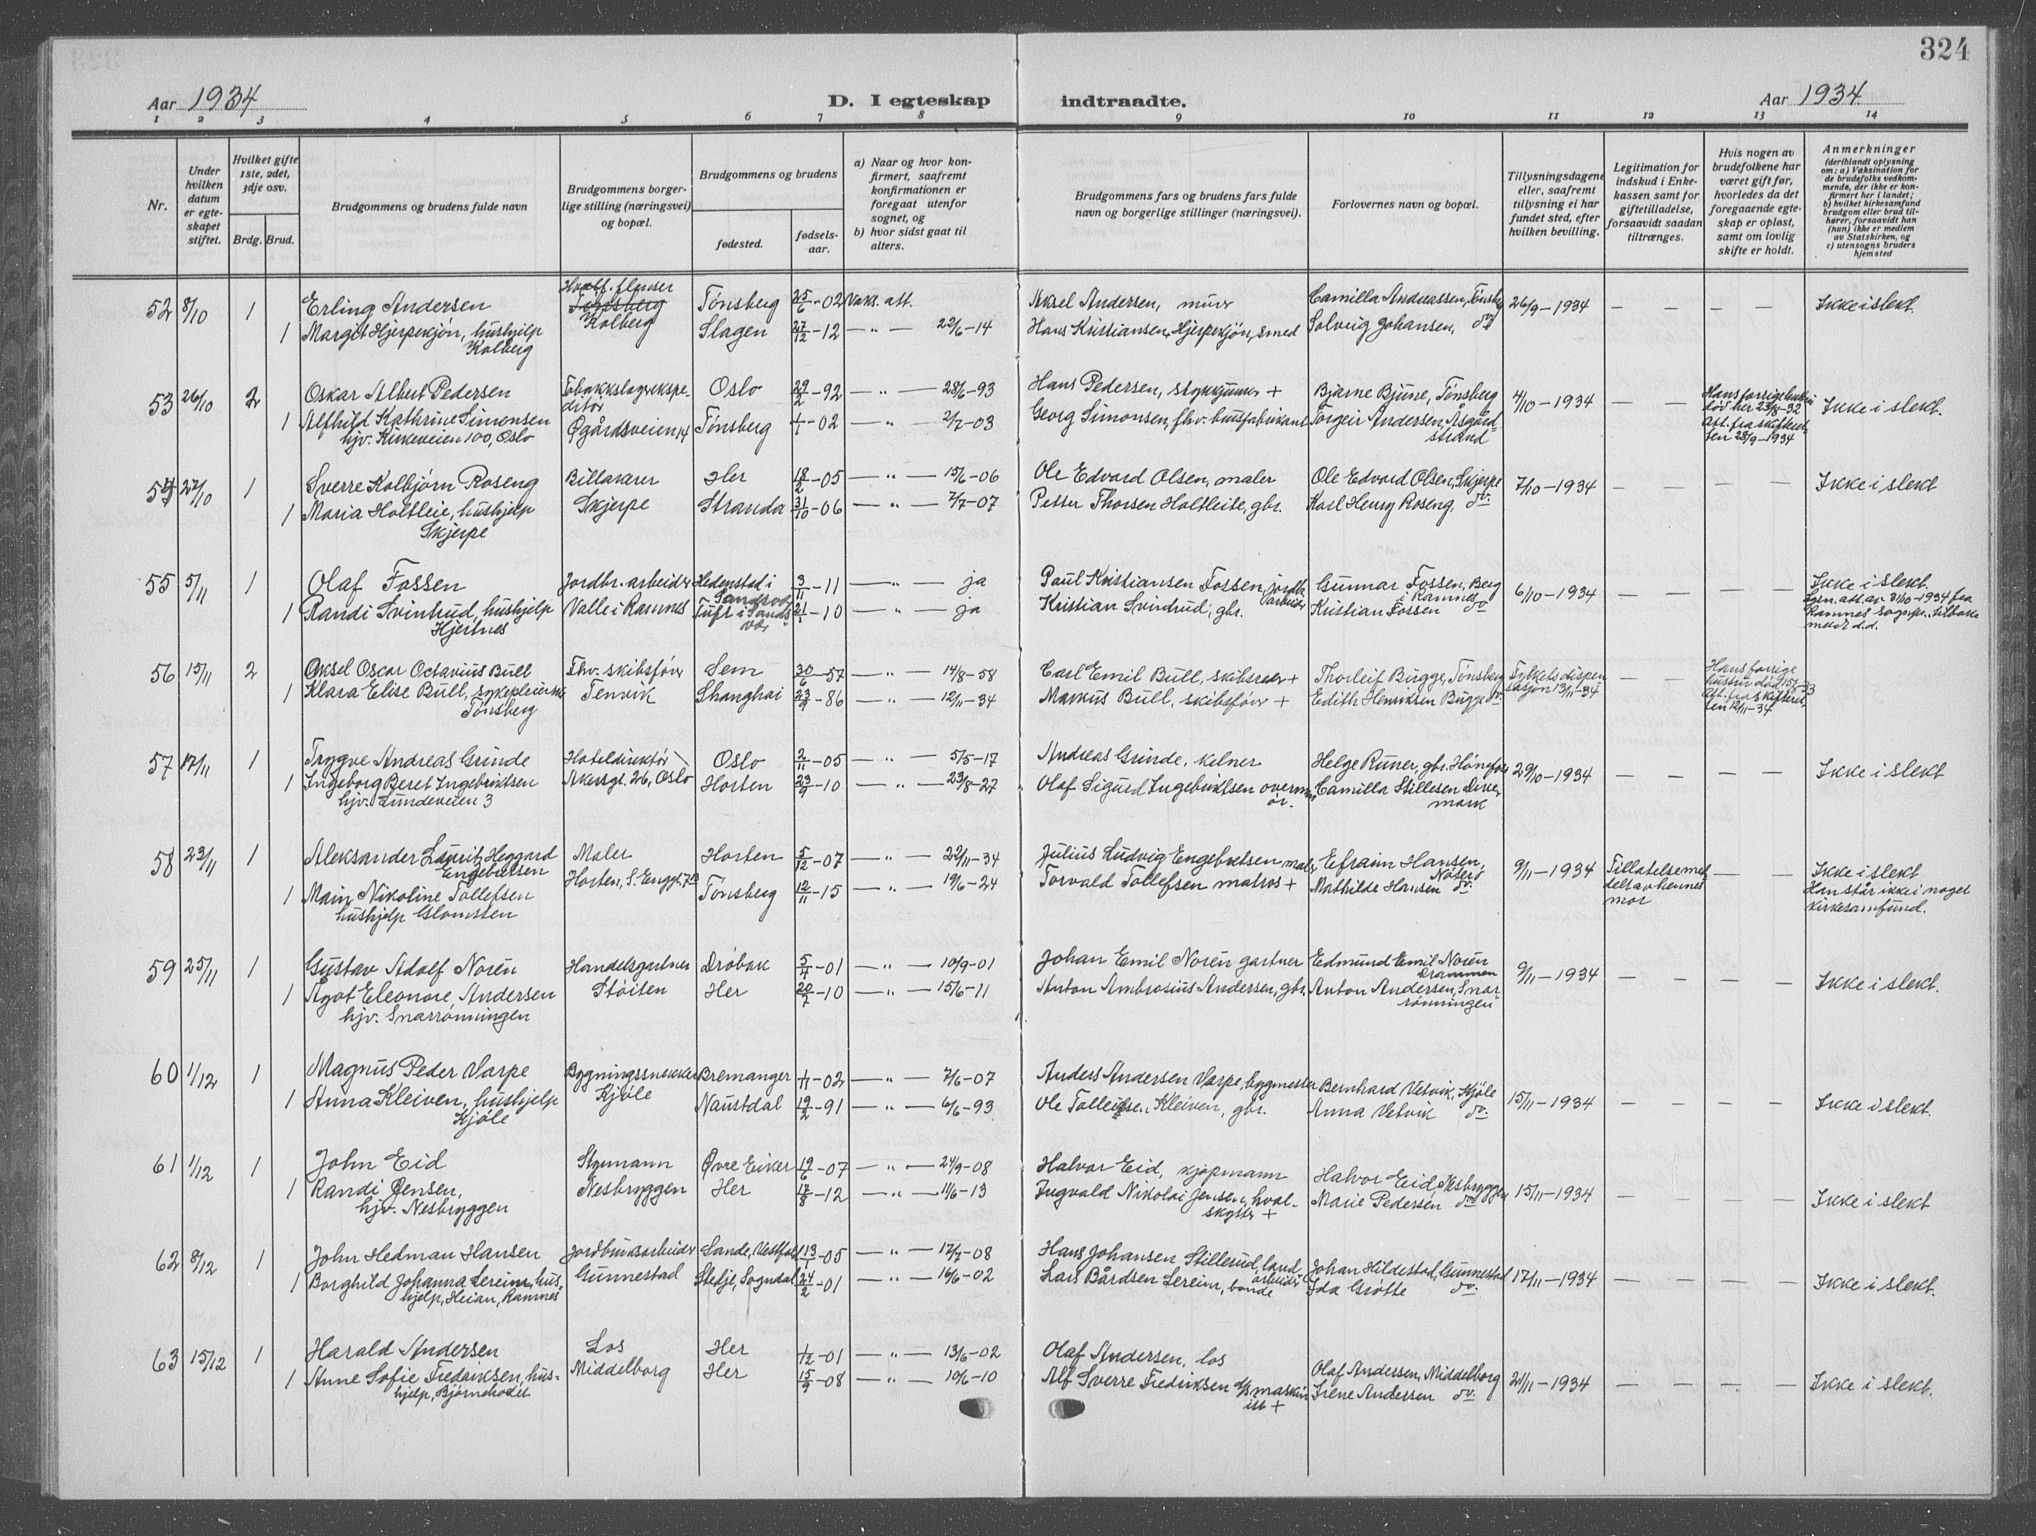 324
Aar 1934
D. I egteskap indtraadte.
Aar 1934
1 2 3 4 5 6 7 8 9 10 11 12 13 14
Nr.
Under hvilken datum er egteskapet stiftet.
Hvilket gifte 1ste, 2det, 3dje osv.
Brdg. Brud.
Brudgommens og brudens fulde navn
Brudgommens borgerlige stilling (næringsvei) og bopæl.
Brudgommens og brudens
fødested.
fødselsaar.
a) Naar og hvor konfirmert, saafremt konfirmationen er foregaat utenfor sognet, og
b) hvor sidst gaat til alters.
Brudgommens fars og brudens fars fulde navn og borgerlige stillinger (næringsvei).
Forlovernes navn og bopæl.
Tillysningsdagene eller, saafremt tillysning ei har fundet sted, efter hvilken bevilling.
Legitimation for indskud i Enkekassen samt for giftetilladelse, forsaavidt saadan tiltrænges.
Hvis nogen av brudefolkene har været gift før, hvorledes da det foregaaende egteskap er opløst, samt om lovlig skifte er holdt.
Anmerkninger
(deriblandt oplysning om: a) Vaksination for de brudefolks vedkommende, der ikke er konfirmert her i landet; b) hvilket kirkesamfund brudgom eller brud tilhører, forsaavidt han (hun) ikke er medlem av Statskirken, og c) utensogns bruders hjemsted
52 8/10 1 Erling Andersen Hvalf. flenser Kolberg Tønsberg 25/6-02 Vaks. att. Aksel Andersen, murer Camilla Andreassen, Tønsbg 26/9-1934 — — — — Ikke i slekt.
1 Margit Hjerpekjøn, hushjelp Kolberg Slagen 27/12-12 — „ — 22/6-14 Hans Kristiansen Hjerpekjøn, smed Solveig Johansen, do
53 26/10 2 Oskar Albert Pedersen Tobakkslagerekspeditør Oslo 29/2-92 — „ — 28/6-93 Hans Pedersen, + Bjarne Bjune, Tønsberg 4/10-1934 — — Hans forrige hustru død her 23/8-32 Att. fra skifteretten 28/9-1934 Ikke i slekt.
1 Alfhild Kathrine Simonsen hjv. Kirkeveien 100, Oslo Øgårdsveien 14 Tønsberg 1/1-02 — „ — 2/7-03 Georg Simonsen, fhv. husfabrikant Torgeir Andersen, Åsgårdstrand
54 27/10 1 Sverre Kolbjørn Roseng Billakerer Her 18/2-05 — „ — 15/6-06 Ole Edvard Olsen, maler Ole Edvard Olsen, Skjerpe 7/10-1934 — — — Ikke i slekt
1 Maria Holtleie, hushjelp Skjerpe Skjerpe Stranda 31/10-06 — „ — 7/7-07 Petter Thorsen Holtleite, gbr. Karl Henry Roseng, do
55 5/11 1 Olaf Fossen Jordbr. arbeider Hedenstad i Sandsvær 3/11-11 — „ — ja Paul Kristiansen Fossen, jordbr. arbeider Gunnar Fossen, Berg i Ramnes 6/10-1934 — — — Ikke i slekt. Lysn. att. av 31/10-1934 fra Ramnes sognepr. tilbakemeldt d.d.
1 Randi Svintrud, hushjelp Hjertnes Valle i Ramnes Tuft i Sandsvær 21/1-10 — „ — ja Kristian Svindrud, gbr. Kristian Fossen do
56 15/11 2 Aksel Oscar Octavius Bull Fhv. skibsfører Sem 30/6-57 — „ — 14/8-58 Carl Emil Bull, skibsreder + Thorleif Bugge, Tønsberg Fylkets dispensasjon 13/11-34 — — Hans forrige hustru død Att. fra skifteretten 12/11-34
1 Klara Elise Bull, sykepleierske Tønsberg Tenvik Shanghai 23/9-86 — „ — 12/11-34 Markus Bull, skibsfører + Edith Henriksen Bugge do
57 17/11 1 Trygve Andreas Grinde Hoteldirektør Oslo 2/11-05 — „ — 5/5-17 Andreas Grinde, kelner Helge Runer, gbr. Hønefoss 29/10-1934 — — — Ikke i slekt
1 Ingeborg Beret Ingebriktsen hjv. Lundeveien 3 Akersgt. 26, Oslo Horten 23/9-10 — „ — 23/8-27 Olaf Sigurd Ingebriktsen Camilla Stillesen Dikemark
58 23/11 1 Aleksander Lauritz Heggard Engebretsen Maler Horten 5/12-07 — „ — 22/11-34 Julius Ludvig Engebretsen maler Efraim Hansen, Nøterø 9/11-1934 Tillatelse meddelt av hennes mor — — Ikke i slekt Han står ikke i noget kirkesamfund.
1 Main Nikoline Tollefsen hushjelp Glomsten Horten, S. Enggt. 7 Tønsberg 12/11-15 — „ — 19/6-24 Torvald Tollefsen matros + Mathilde Hansen do.
59 25/11 1 Gustav Adolf Norén Handelsgartner Drøbak 5/4-01 — „ — 10/9-01 Johan Emil Norén gartner Edmund Emil Norén Drammen 9/11-1934 — — — Ikke i slekt.
1 Ågot Eleonore Andersen hjv. Snarrønningen Støiten Her 20/2-10 — „ — 15/6-11 Anton Ambrosius Andersen, gbr. Anton Andersen, Snarrønningen
60 1/12 1 Magnus Peder Varpe Bygningssnekker Bremanger 1/11-02 — „ — 7/6-07 Anders Andersen Varpe, bygmester Bernhard Vetvik, Kjøle 15/11-1934 — — — Ikke i slekt.
1 Anna Kleiven, hushjelp Kjøle Kjøle Naustdal 19/2-91 — „ — 6/6-93 Ole Tollefsen Kleiven, gbr. Anna Vetvik do.
61 1/12 1 John Eid Styrmann Øvre Eiker 19/6-07 — „ — 24/9-08 Halvor Eid, kjøpmann Halvor Eid, Nesbryggen 15/11-1934 — — — Ikke i slekt
1 Randi Jensen, hjv. Nesbryggen Nesbryggen Her 17/8-12 — „ — 11/6-13 Ingvald Nikolai Jensen, hvalskytter + Marie Pedersen do
62 8/12 1 John Hedman Hansen Jordbruksarbeider Sande, Vestfold 13/1-05 — „ — 17/7-08 Hans Johansen Stillerud, landarbeider Johan Hildestad, Gunnestad 17/11-1934 — — — Ikke i slekt.
1 Borghild Johanna Lereim, hushjelp, Heian, Ramnes Gunnestad Stedje, Sogndal 24/2-01 — „ — 16/6-02 Lars Bårdsen Lereim, bonde Ida Grøtte do.
63 15/12 1 Harald Andersen Los Her 1/12-01 — „ — 13/6-02 Olaf Andersen, los Olaf Andersen, Middelborg 21/11-1934 — — — Ikke i slekt.
1 Anne Sofie Fredriksen, hushjelp, Bjørnehodet Middelborg Her 15/9-08 — „ — 10/6-10 Alf Sverre Fredriksen maskinist + Irene Andersen do.